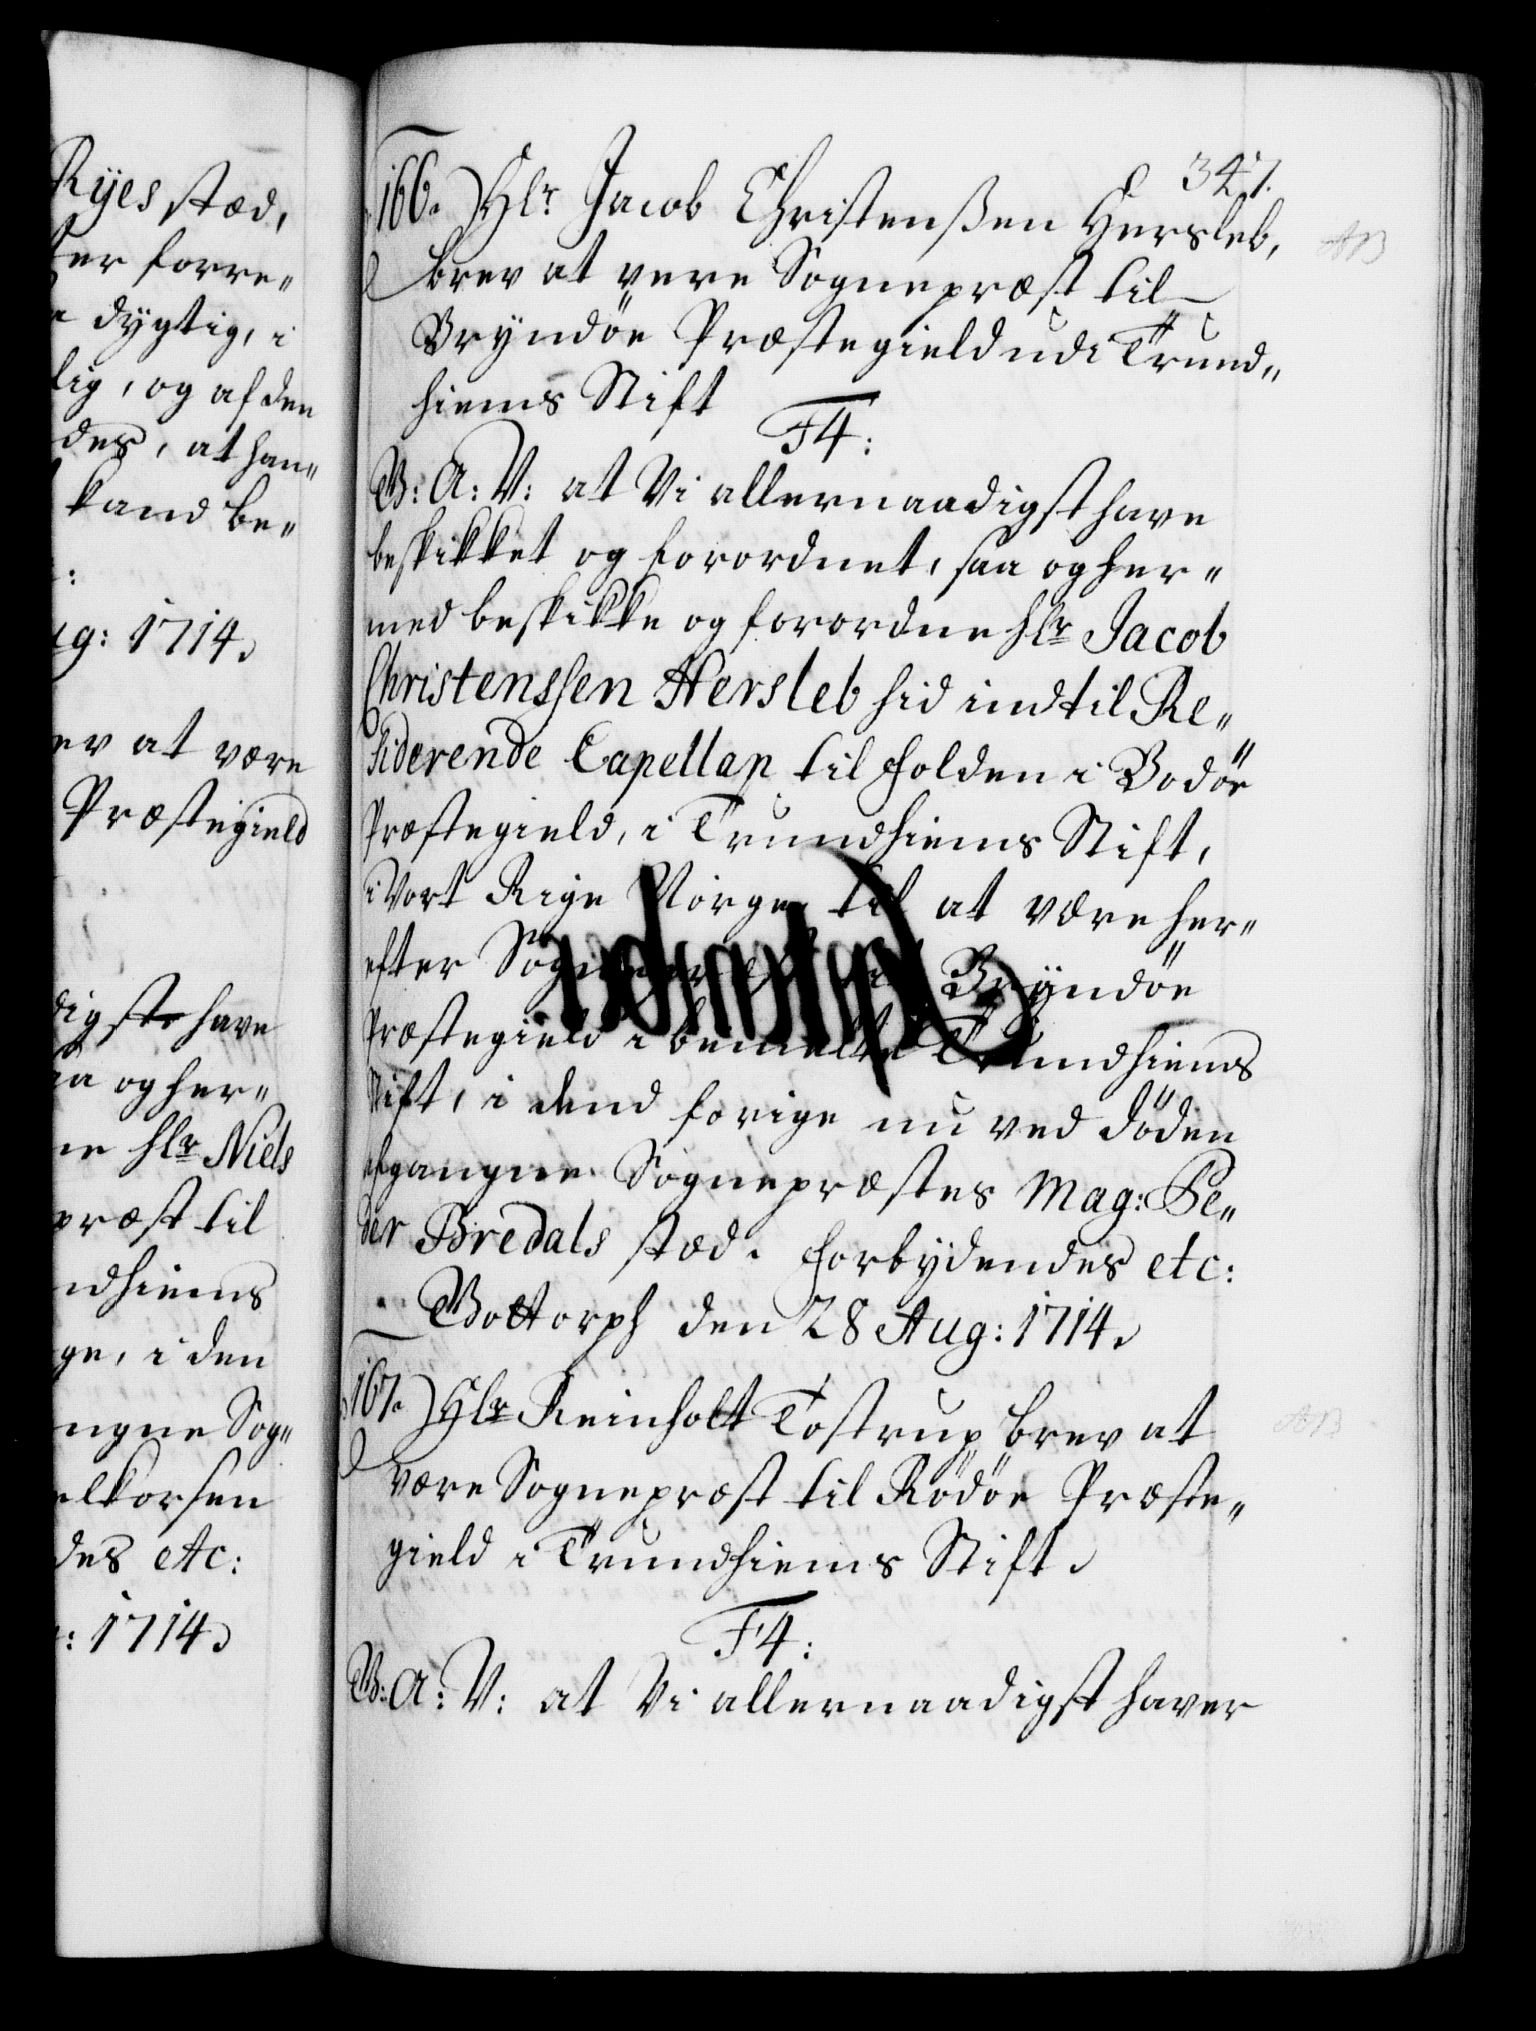 Ryes stæd,
ter forre„
e dygtig, i
lig, og af den
des, at han„
kand be„
:
ug: 1714.
ev at være
Præstegield
digst have
aa og her„
ne Hlr Niels
præst til
ndhiems
ge, i den
ngne Sog„
elkorsen
des etc:
: 1714.
347.
166.) Hlr Jacob Christenßen Hersleb,
brev at være Sognepræst til
Bryndöe Præstegield udi Trund„
hiems Stift
F4:
G: A: V: at Vi allernaadigst have
beskikket og forordnet, saa og her„
med beskikke og forordne Hlr Jacob
Christenssen Hersleb hid indtil Re„
siderende Capellan til Folden i Bodöe
Præstegield, i Trundhiems Stift,
i Vort Rige Norge, til at være her„
efter Sognepræst til Bryndöe
Præstegield i bemelte Trundhiems
Stift, i dend forige nu ved döden
afgangne Sognepræstes Mag: Pe„
der Bredals stæd. Forbydendes etc:
Gottorph den 28 Aug: 1714.
167.) Hlr Reinholt Tostrup brev at
være Sognepræst til Rödöe Præste„
gield i Trundhiems Stift.
F4:
G: A: V: at Vi allernaadigst haver